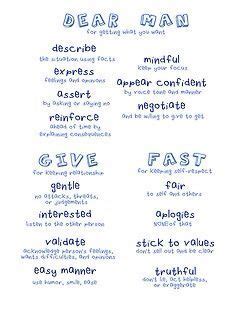 DEAR MAN
for getting what you want
describe
the situation using facts
express
feelings and opinions
assert
by asking or saying no
reinforce
ahead of time by
explaining consequences
mindful
keep your focus
appear confident
by voice tone and manner
negotiate
and be willing to give to get
GIVE
for keeping relationship
gentle
no attacks, threats,
or judgements
interested
listen to the other person
validate
acknowledge person's feelings,
wants difficulties, and opinions
easy manner
use humor, smile, ease
FAST
for keeping self-respect
fair
to self and others
aplogies
NONE of that
stick to values
don't sell out on beliefs
truthful
don't lie, act helpless,
or exaggerate